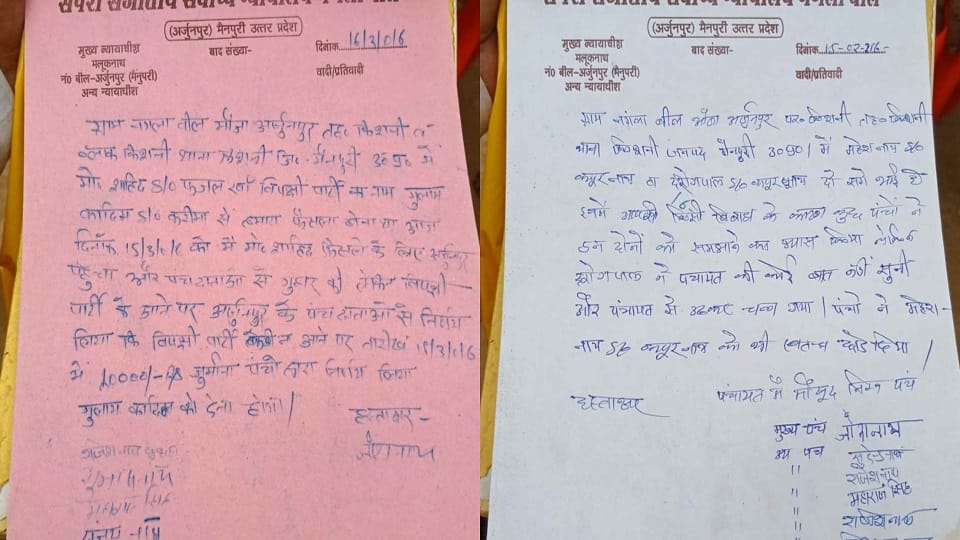 सपेरा संगीतीय सर्वोच्च न्यायालय नगला बील
(अर्जुनपुर) मैनपुरी उत्तर प्रदेश
मुख्य न्यायाधीश
मलूकनाथ
न0 बील-अर्जुनपुर (मैनपुरी)
अन्य न्यायाधीश
बाद संख्या-
दिनांक 16/3/016
वादी/प्रतिवादी
ग्राम नगला बील मौजा अर्जुनपुर तह० किशनी व
ब्लाक किशनी थाना किशनी जि० मैनपुरी उ०प्र० में
मो० शाहिद S/o फजल खाँ विपक्षी पार्टी का नाम गुलाम
कादिम S/o करीमा से हमारा फैसला होना था आज
दिनाँक 15/3/16 को में मो० शाहिद फैसले के लिए अर्जुनपुर
पहुँचा और पंच दाताओं से गुहार की लेकिन विपक्षी
पार्टी के आने पर अर्जुनपुर के पंच दाताओं से निर्णय
लिया कि विपक्षी पार्टी न आने पर तारीख 15/3/016
में 10000/- जुर्माना पंचो द्वारा निर्णय लिया
गुलाम कादिम को देना होगा।
हस्ताक्षर-
जोगनाथ
सपेरा संगीतीय सर्वोच्च न्यायालय नगला बील
(अर्जुनपुर) मैनपुरी उत्तर प्रदेश
मुख्य न्यायाधीश
मलूकनाथ
न0 बील-अर्जुनपुर (मैनपुरी)
अन्य न्यायाधीश
बाद संख्या-
दिनांक 15-02-216
वादी/प्रतिवादी
ग्राम नगला बील मौजा अर्जुनपुर पर० किशनी तह० किशनी
थाना किशनी जनपद मैनपुरी उ०प्र०। में महेशनाथ S/o
कपूरनाथ व S/o कपूरनाथ दो सगे भाई थे
इनमें आपसी किसी बिवाद के कारण कुछ पंचों ने
इन दोनों को समझाने का प्रयास किया लेकिन
ने पंचायत की कोई बात नहीं सुनी
और पंचायत से उठकर चला गया। पंचो ने महेश-
नाथ S/o कपूरनाथ को भी स्वतन्त्र छोड़ दिया।
हस्ताक्षर
पंचायत में मौजूद निम्न पंच
मुख्य पंच जोगनाथ
पंच
राजेशनाथ
महाराज सिंह